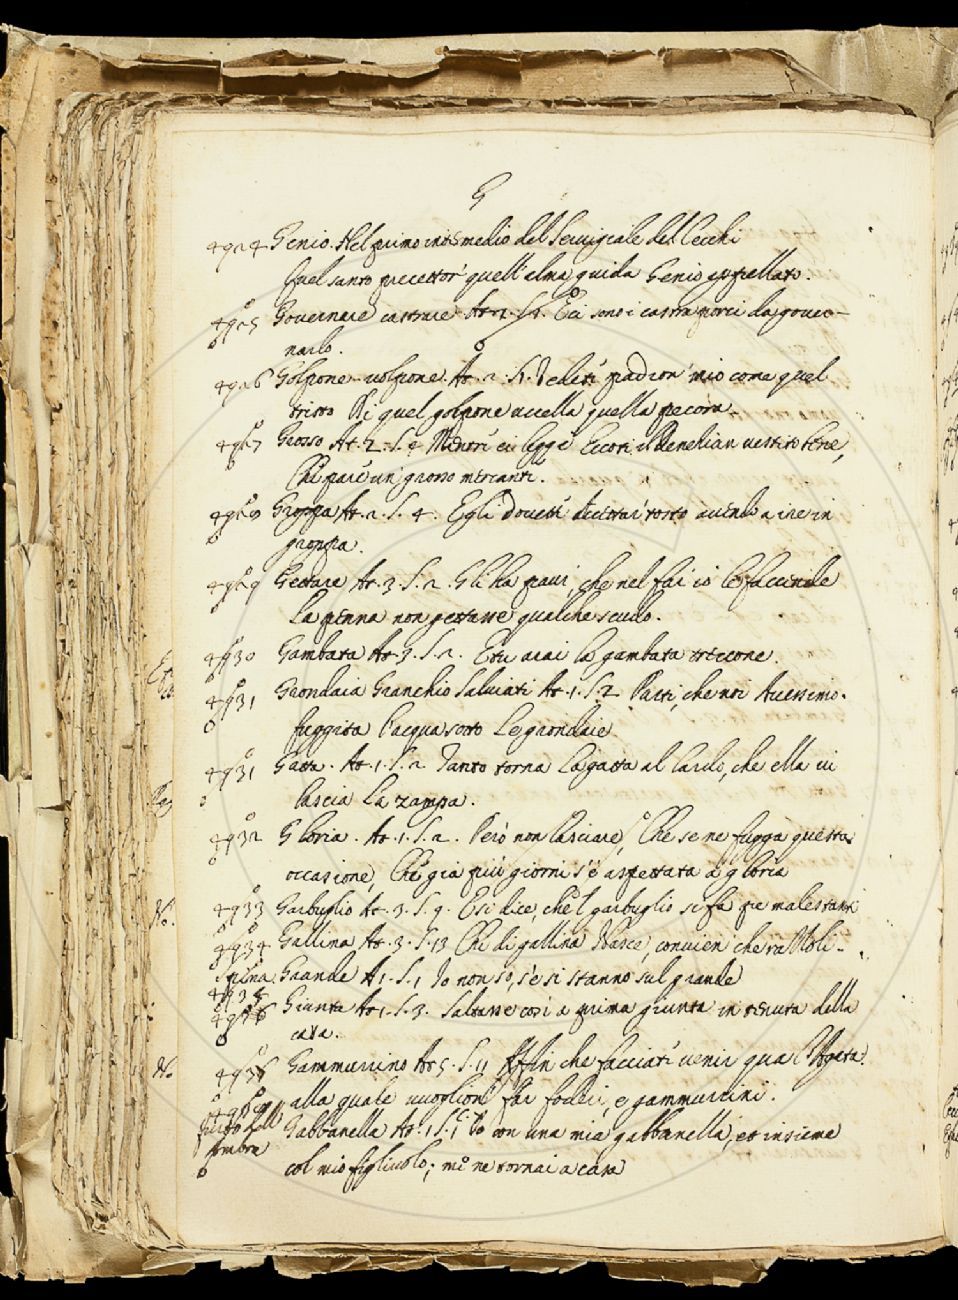 G
4924 Genio. Nel primo intermedio del Servigiale del Cecchi
Quel santo precettor' quell'alma guida Genio appellato.
4925 Governare castrare At. 2. S. 1. Eci sono i castraporci da gover-
narlo.
4926 Golpone - volpone. At. 2. S. 1. Vedesti padron' mio come quel
tristo Di quel golpone uccella quella pecora
4927 Grosso At. 2. S. Eccoti il vestito bene,
Che pare un grosso mercante.
Groppa At. 2. S. 4. Egli dovette tosto avendo a ire in
groppa.
4929 Gettare At. 3. S. 2. Gli ha paur', che nel far io le faccende
La penna non gettasse qualche scudo.
4930 Gambata At. 3. S. 2. E tu arai la gambata treccone.
4931 Grondaia Granchio Salviati At. 1. S. 2 Patti, che noi Avessimo
fuggita l'acqua sotto Le grondaie
4931 Gatta. At. 1. S. 2 Tanto torna la gatta al lardo, che ella vi
lascia La zampa.
4932 Gloria. At. 1. S. 2. Però non lasciare, Che se ne fugga questa
occasione, Che già più giorni s'è aspettata a gloria
4933 Garbuglio At. 3. S. 9. E si dice, che'l garbuglio si fa pe malestanti
No. 4934 Gallina At. 3. S. 13 Chi di gallina Nasce, convien che razzoli -
Spina Grande At. 1. S. 1 Io non so, s'e si stanno sul grande
4935
Giunta At. 1. S. 3. Saltasse così a prima giunta in tenuta della
casa.
No Gammurrino At. 5. S. 11 Affin che facciate venir qua l'Agata
alla quale vuoglion' far foderi, e gammurrini.
Gabbanella At. 1. S. 1 Io con una mia gabbanella, et insieme
ombra
col mio figliuolo; me ne tornai a casa